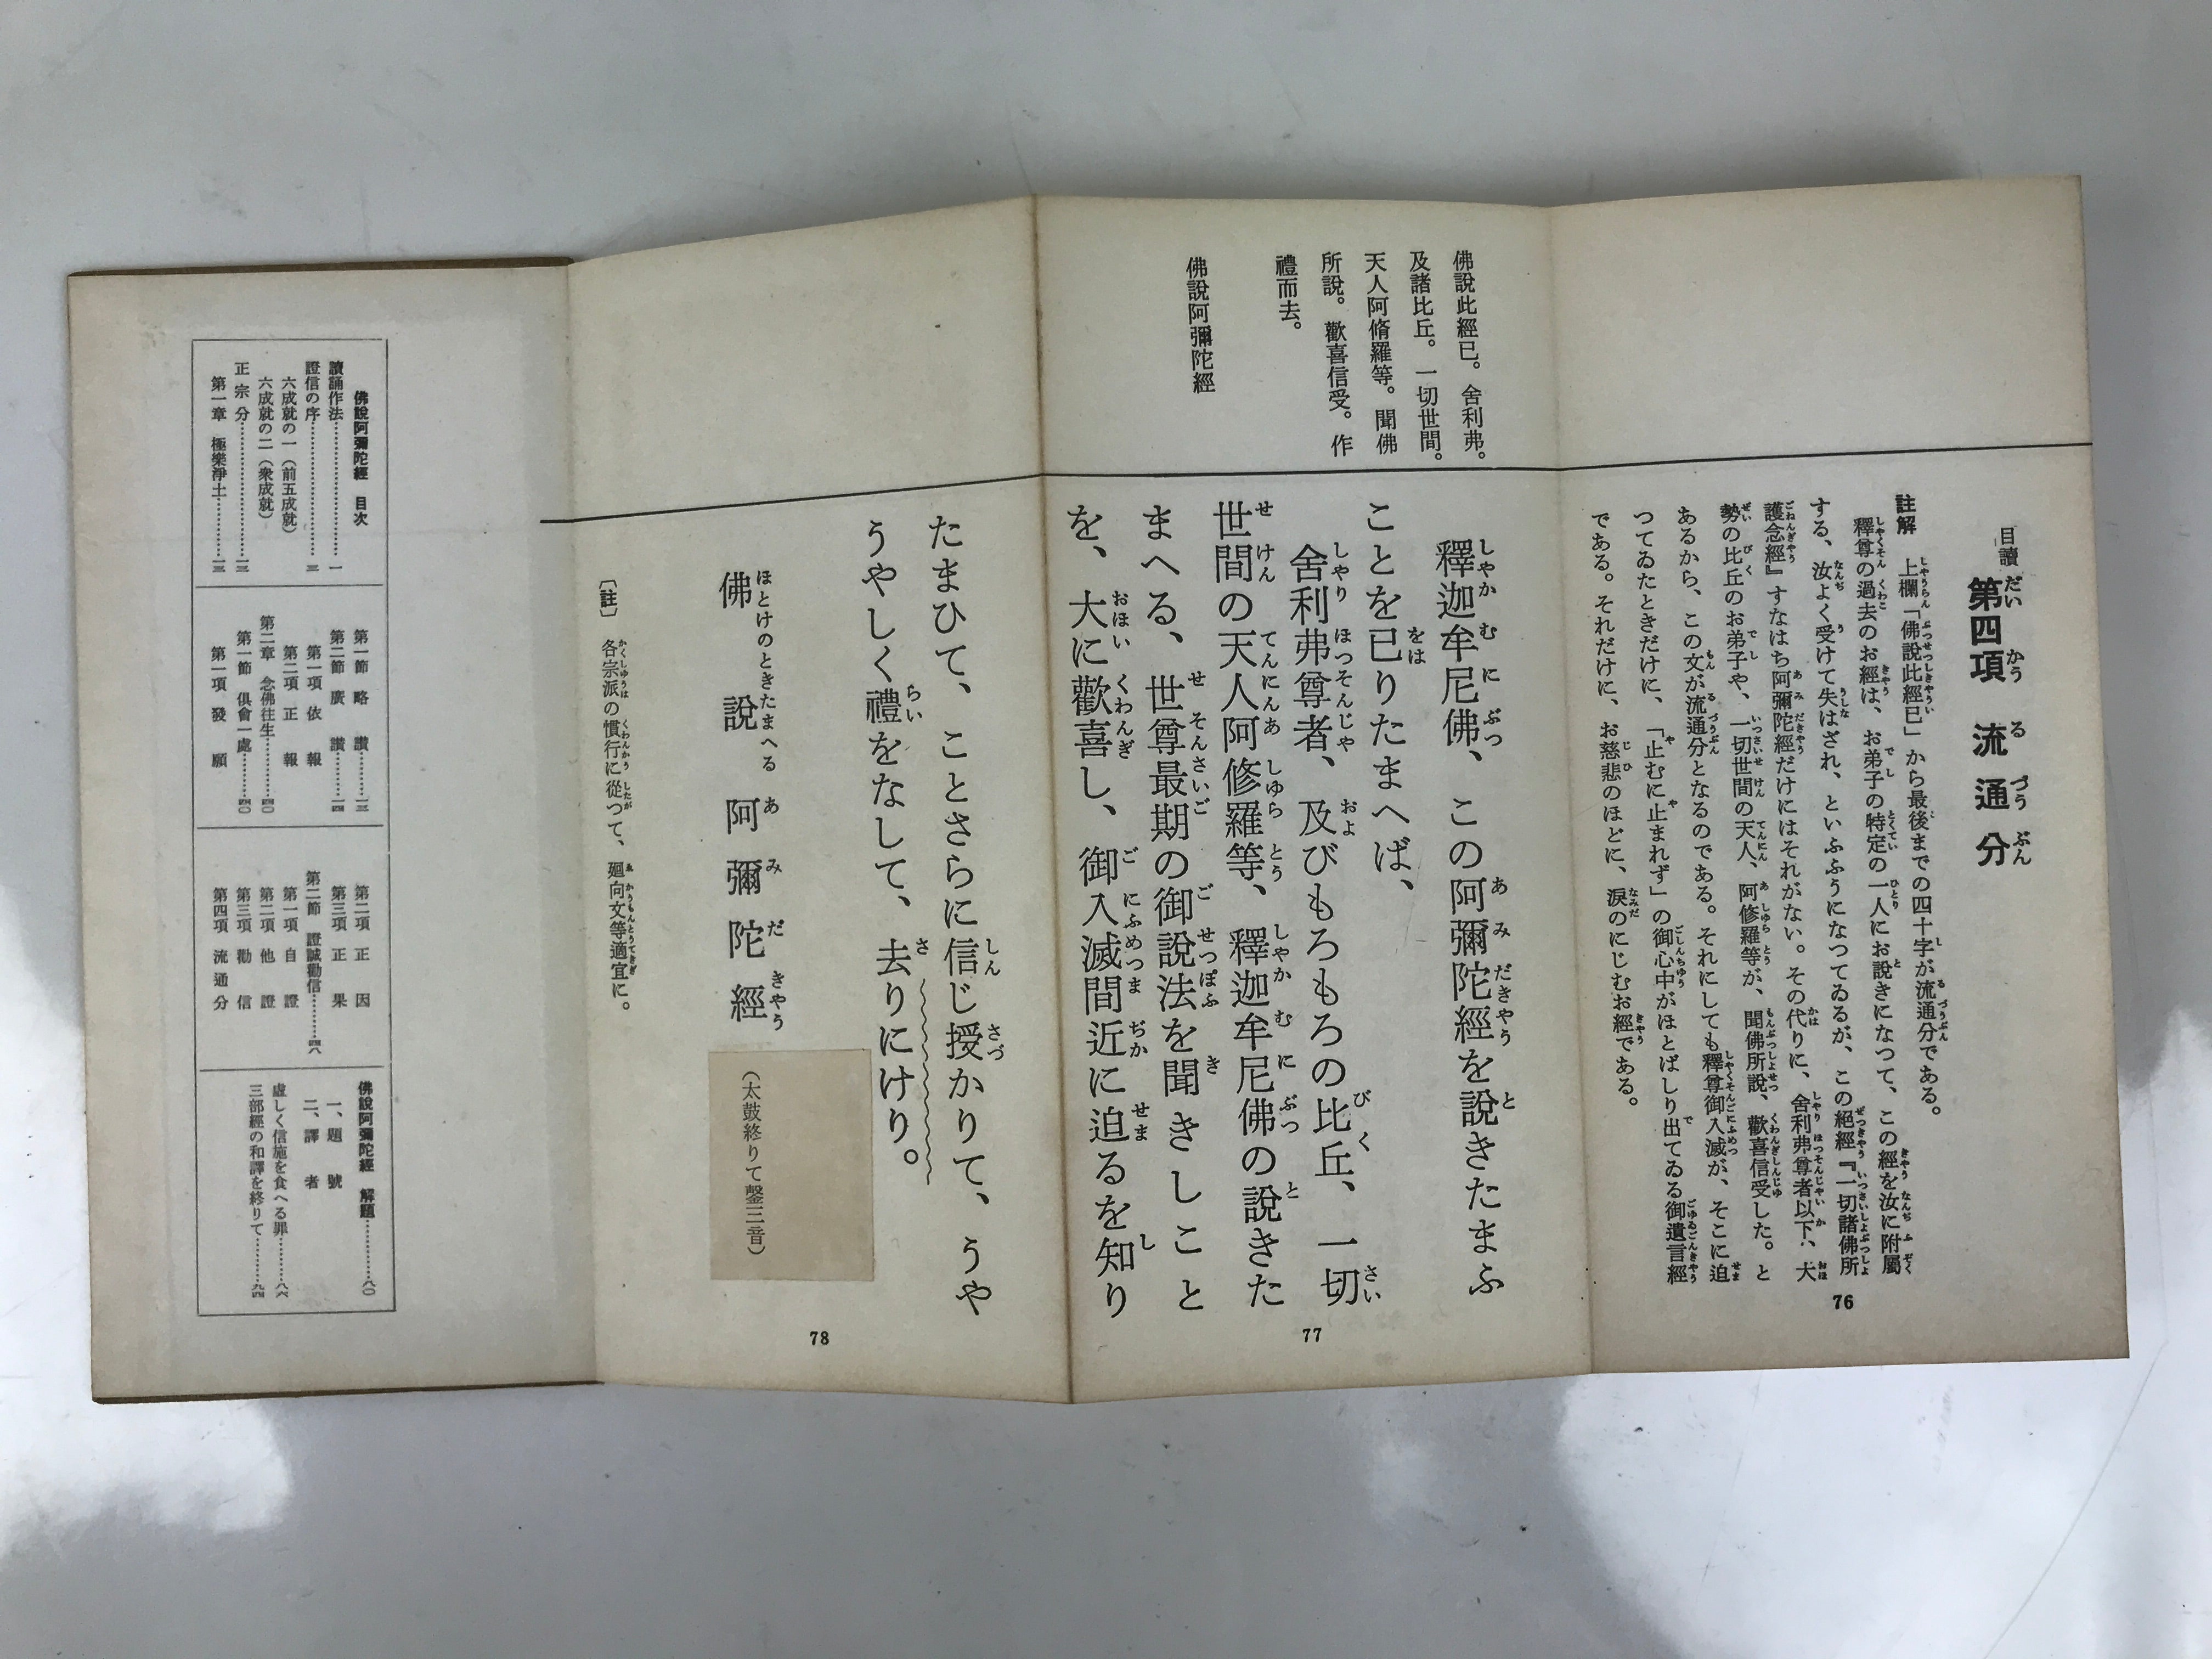 目讀
第四項 流通分
註解 上欄「佛說此經已」から最後までの四十字が流通分である。
釋尊の過去のお經は、お弟子の特定の一人にお說きになつて、この經を汝に附屬
する、汝よく受けて失はざれ、といふふうになつてゐるが、この絕經『一切諸佛所
護念經』すなはち阿彌陀經だけにはそれがない。その代りに、舍利弗尊者以下、大
勢の比丘のお弟子や、一切世間の天人、阿修羅等が、聞佛所說、歡喜信受した。と
あるから、この文が流通分となるのである。それにしても釋尊御入滅が、そこに迫
つてゐたときだけに、「止むに止まれず」の御心中がほとばしり出てゐる御遺言經
である。それだけに、お慈悲のほどに、淚のにじむお經である。
76
佛說此經已。舍利弗。
及諸比丘。一切世間。
天人阿脩羅等。聞佛
所說。歡喜信受。作
禮而去。
佛說阿彌陀經
釋迦牟尼佛、この阿彌陀經を說きたまふ
ことを已りたまへば、
舍利弗尊者、及びもろもろの比丘、一切
世間の天人阿修羅等、釋迦牟尼佛の說きた
まへる、世尊最期の御說法を聞きしこと
を、大に歡喜し、御入滅間近に迫るを知り
77
たまひて、ことさらに信じ授かりて、うや
うやしく禮をなして、去りにけり。
佛說阿彌陀經
ほとけのときたまへる あみだきやう
(太鼓終りて鏧三音)
〔註〕 各宗派の慣行に從つて、廻向文等適宜に。
78
佛說阿彌陀經 目次
讀誦作法……一
證信の序……三
六成就の一(前五成就)
六成就の二(衆成就)
正宗分……一三
第一章 極樂淨土……一三
第一節 略讚……一三
第二節 廣讚……一四
第一項 依報
第二項 正報
第二章 念佛往生……四〇
第一節 俱會一處……四〇
第一項 發願
第二項 正因
第三項 正果
第二節 證誠勸信……四八
第一項 自證
第二項 他證
第三項 勸信
第四項 流通分
佛說阿彌陀經 解題……八〇
一、題號
二、譯者
虛しく信施を食へる罪……八六
三部經の和譯を終りて……九四